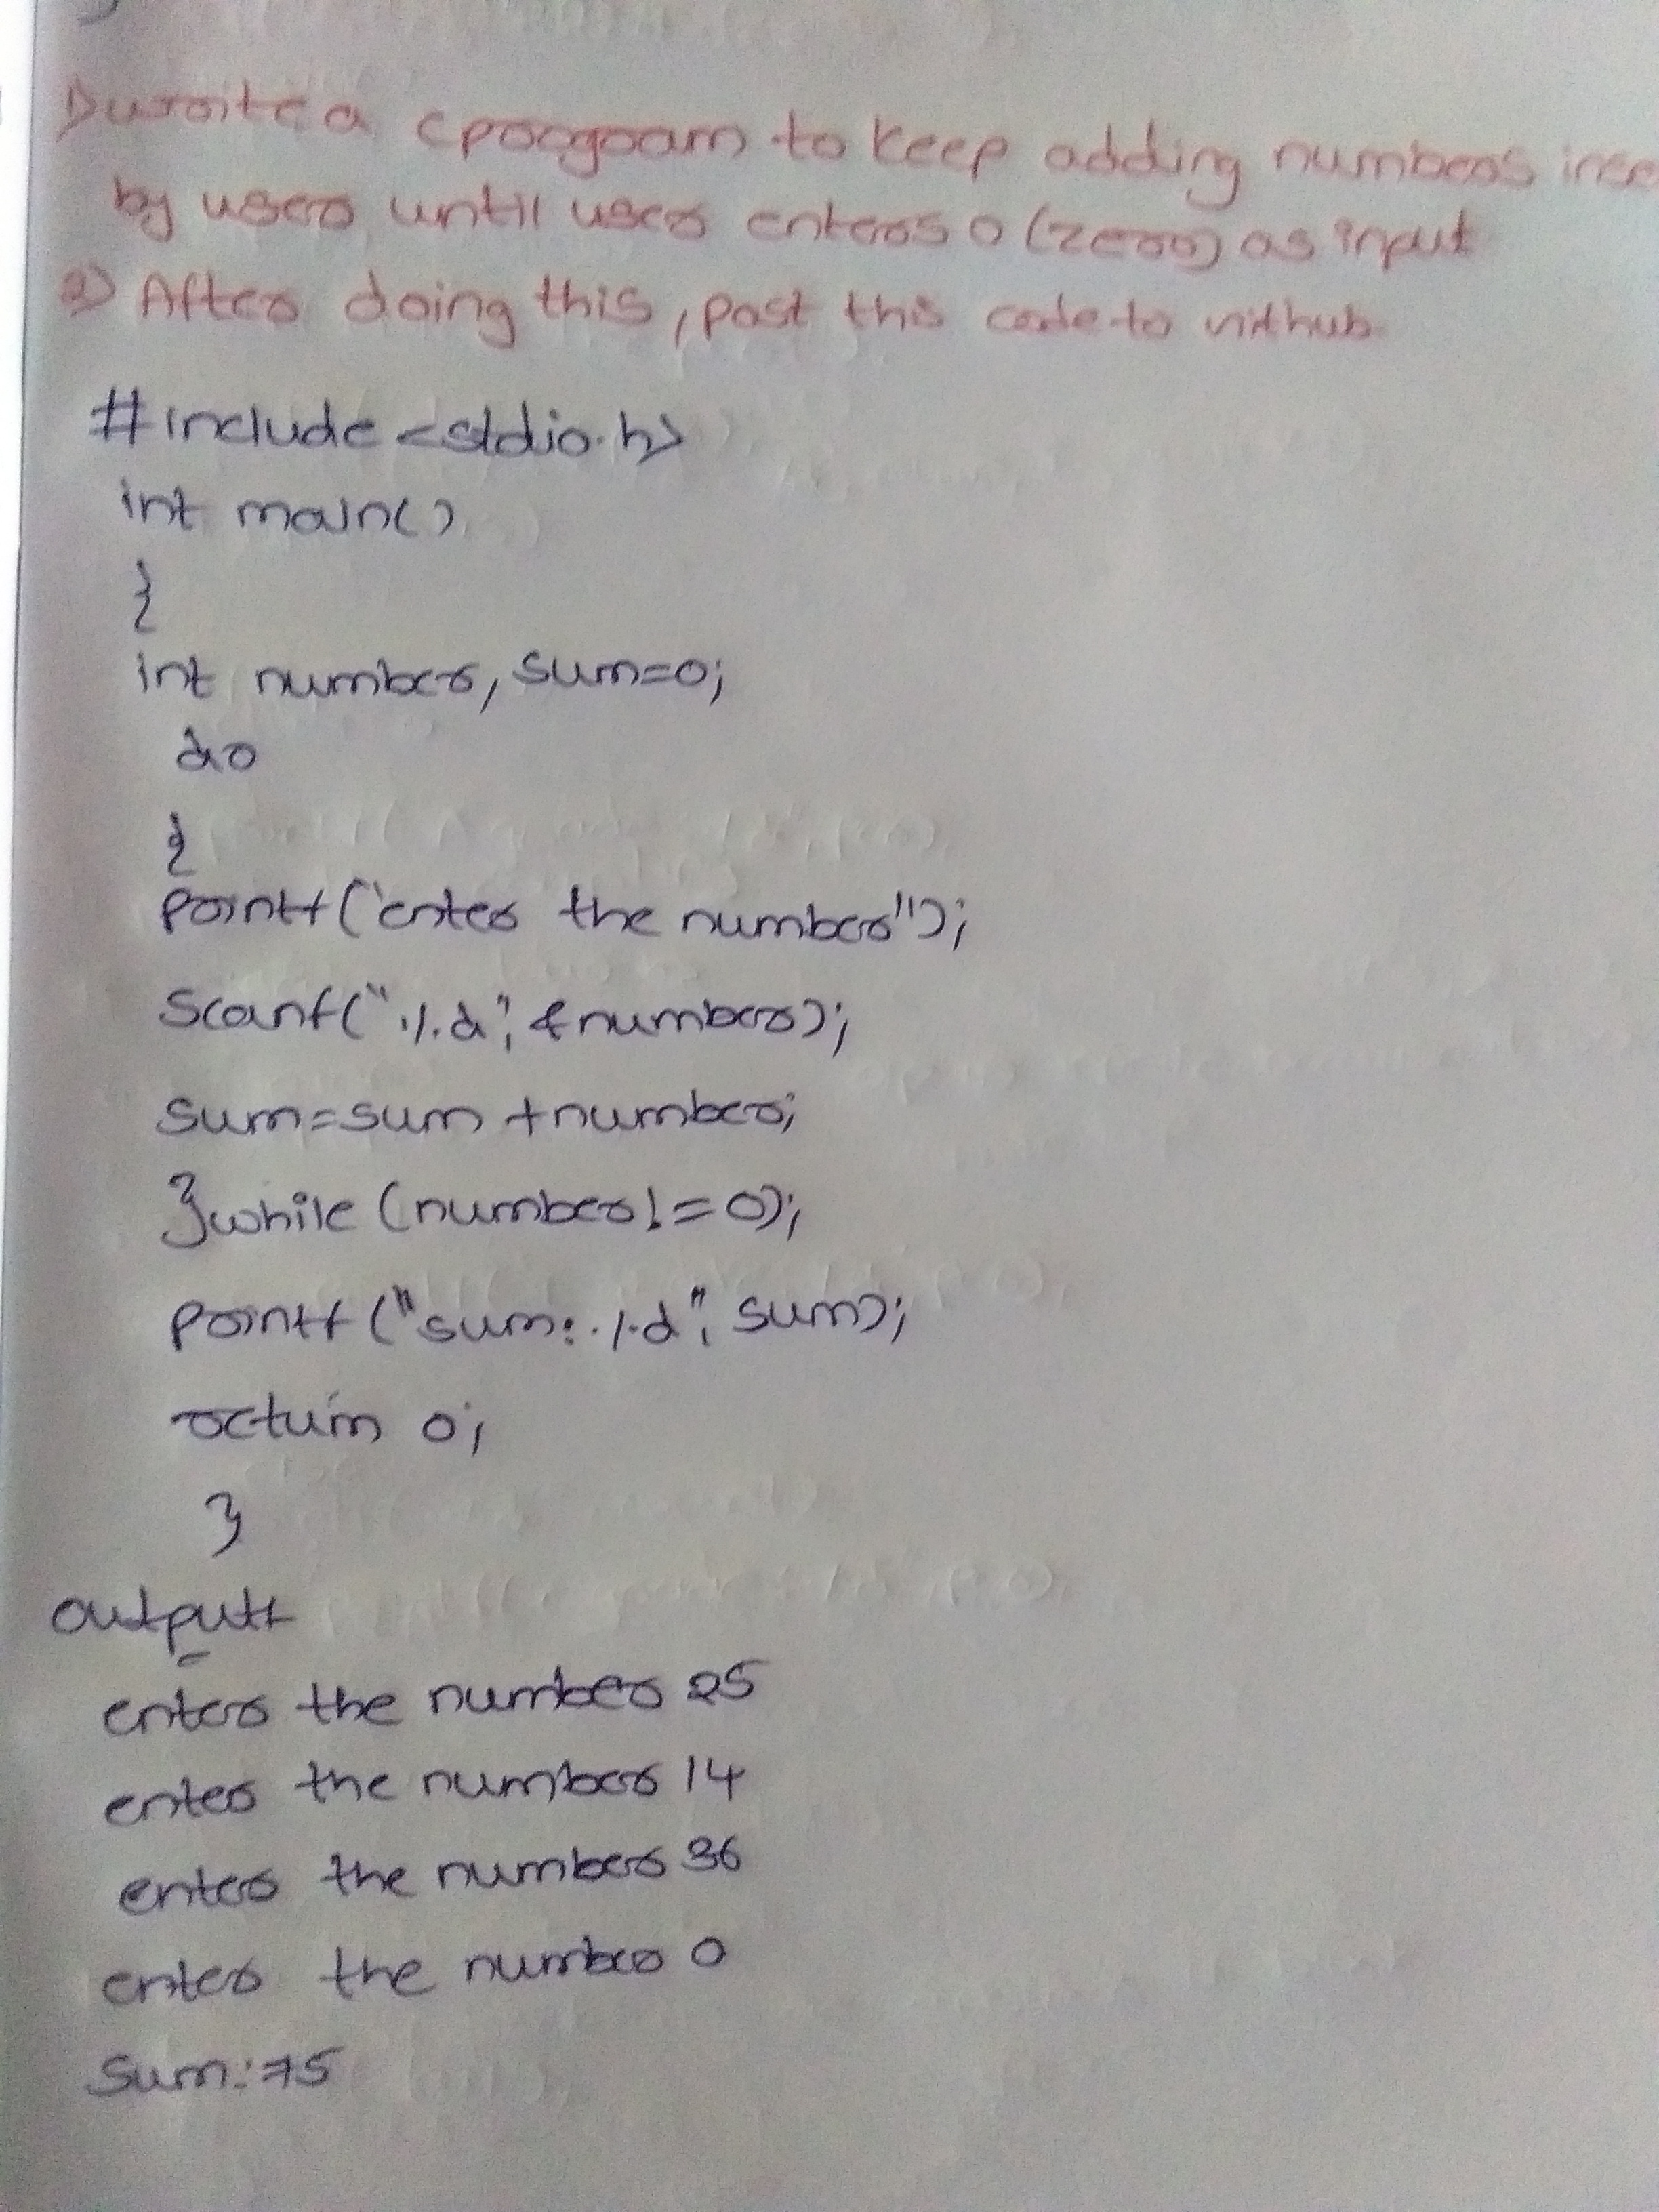 1) write a c program to keep adding numbers
by user until user enters 0 (zero) as input
2) After doing this, post this code to vithub.
#include <stdio.h>
int main()
{
int number, sum=0;
do
{
printf("enter the number");
scanf("%d", &number);
sum=sum +number;
}while (number!=0);
printf ("sum:%d", sum);
return 0;
}
output
enter the number 25
enter the number 14
enter the number 36
enter the number 0
Sum:75